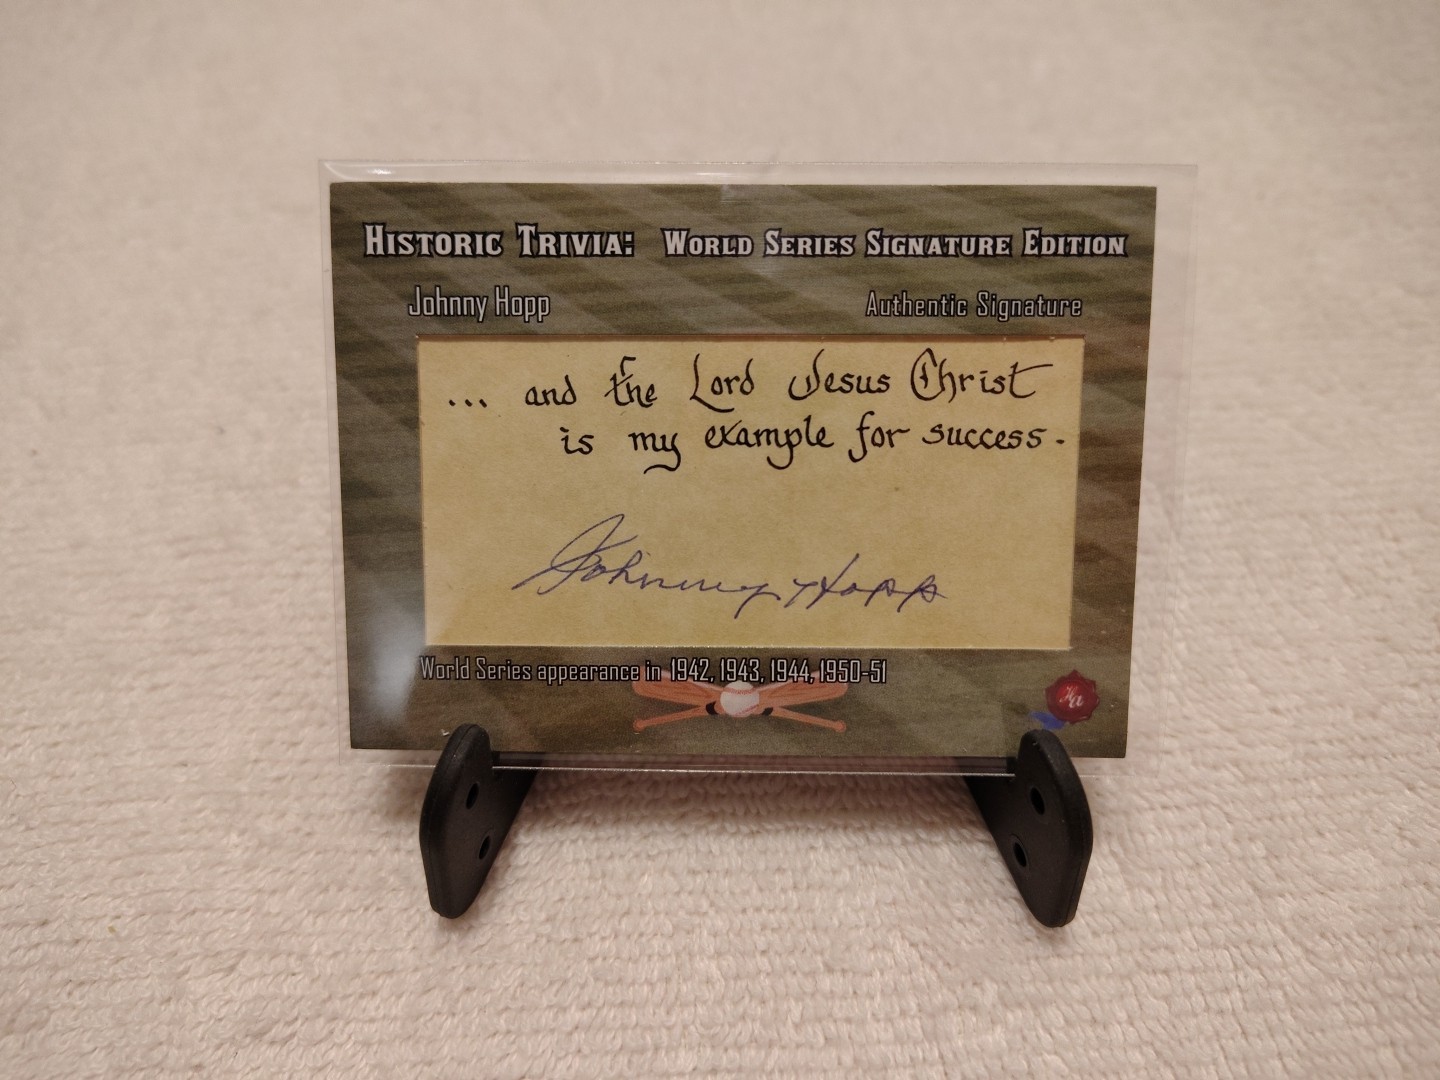 Historic Trivia: World Series Signature Edition
Johnny Hopp Authentic Signature
... and the Lord Jesus Christ
is my example for success.
Johnny Hopp
World Series appearance in 1942, 1943, 1944, 1950-51
HA